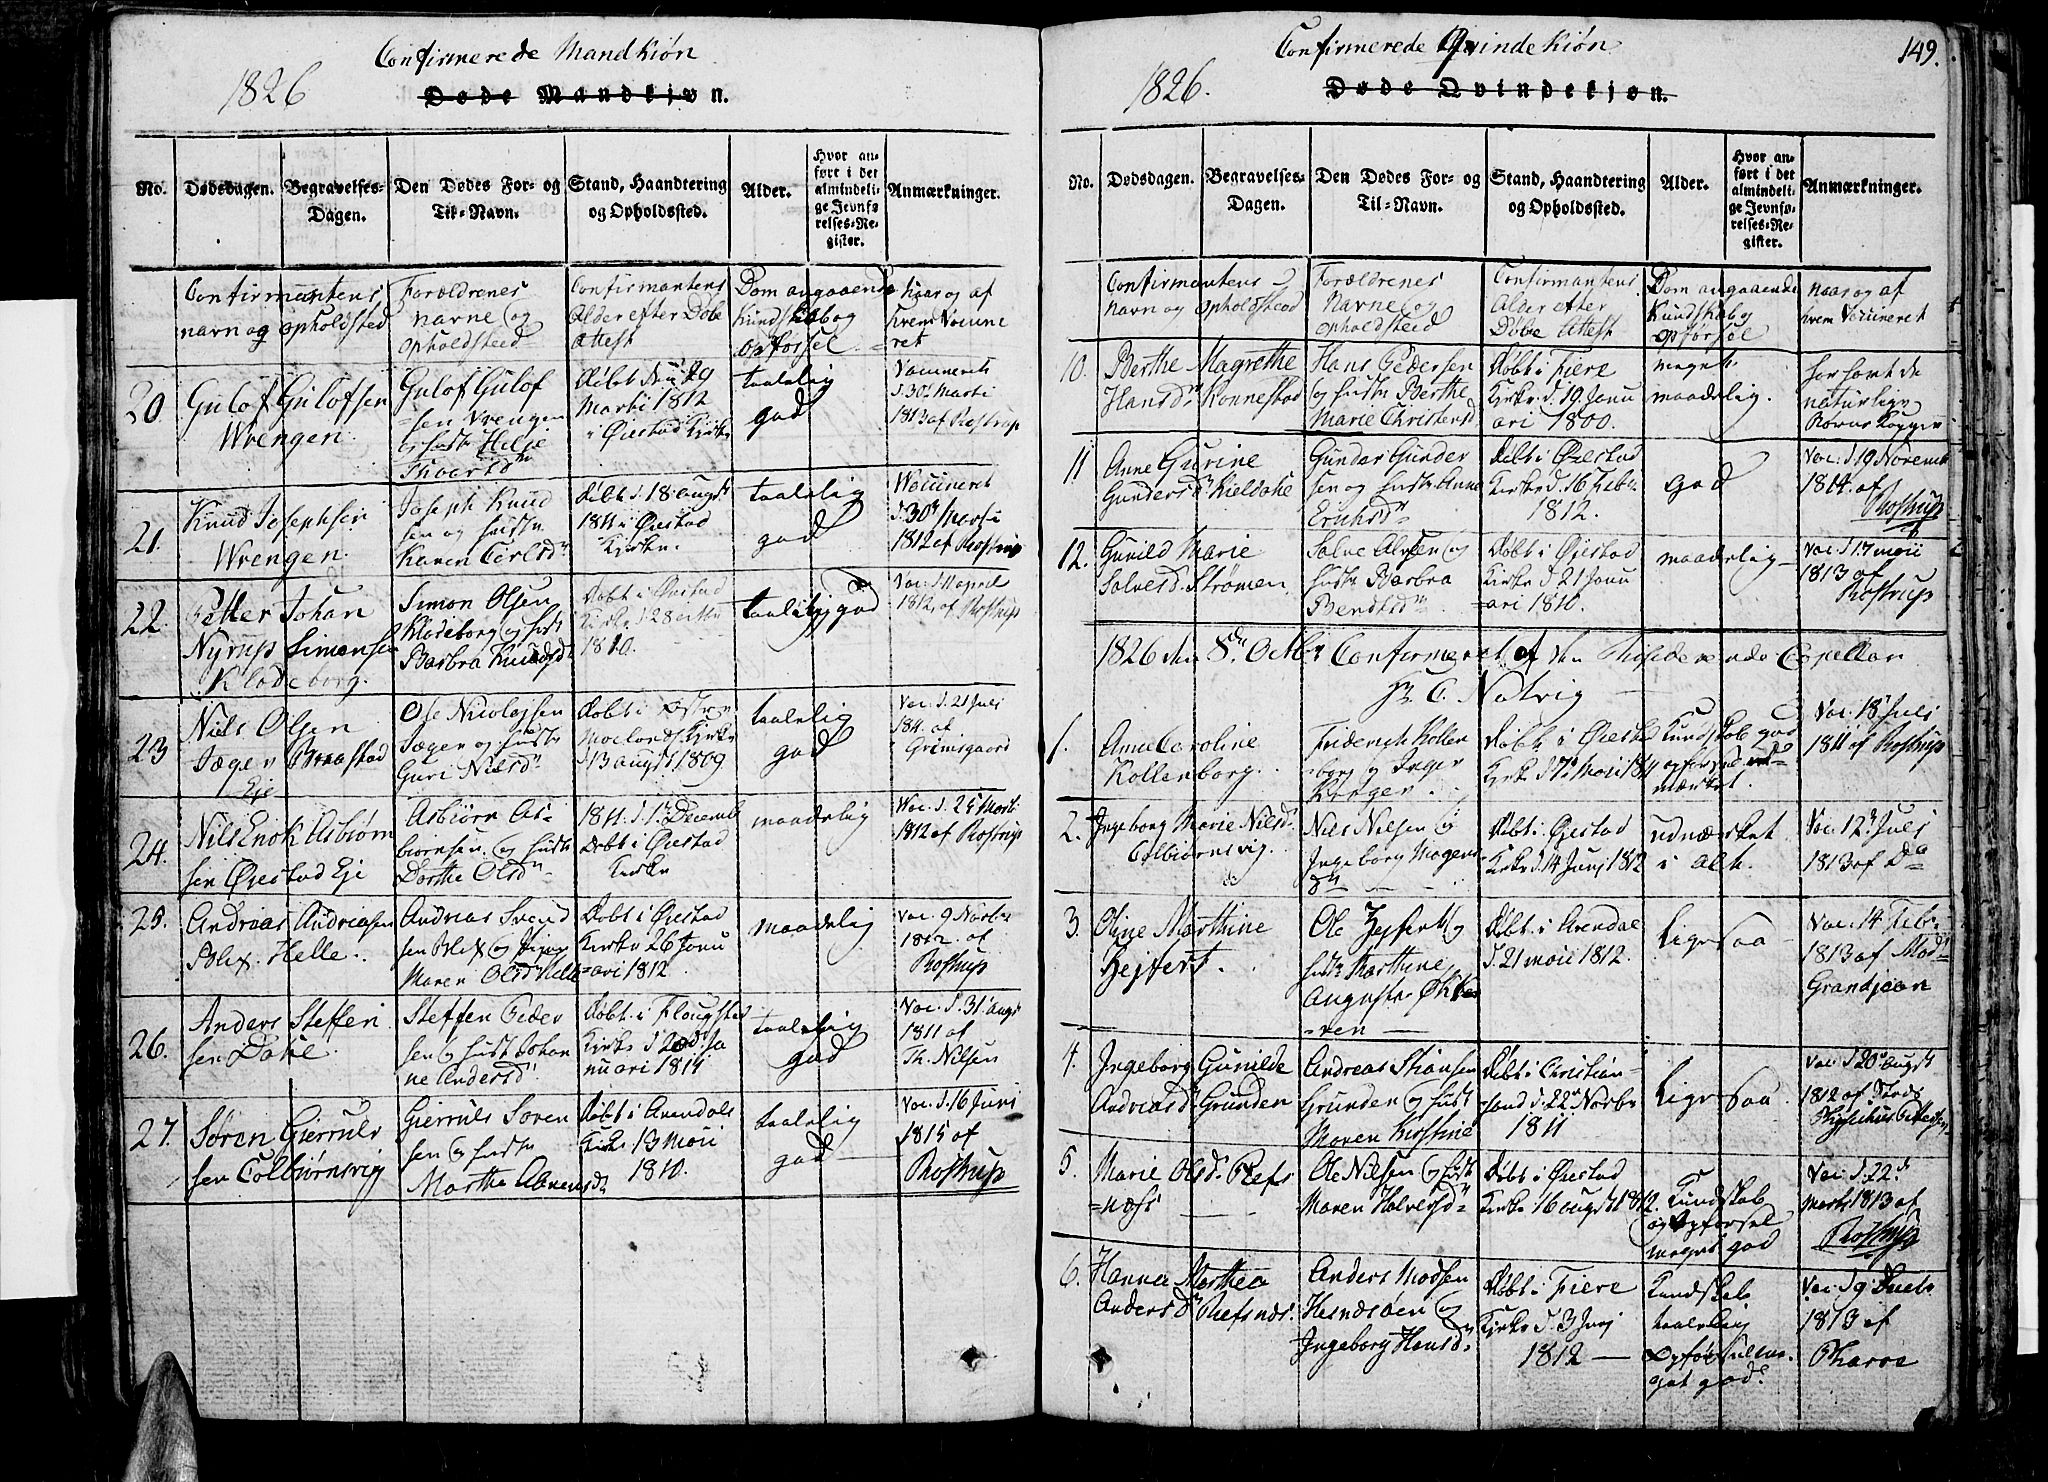 Confirmerede Mandkiøn
1826
Døde Mandkjøn.
No.
Dødsdagen.
Begravelses-
Dagen.
Den Dødes For- og
Til-Navn.
Stand, Haandtering
og Opholdssted.
Alder.
Hvor an-
ført i det
almindeli-
ge Jevnfø-
relses-Re-
gister.
Anmærkninger.
Confirmantens
navn og opholdsted
Forældrenes
navne og
opholdsteed
Confirmantens
Alder efter Døbe
attest
Dom angaaende
Kundskab og
opførsel
naar og af
hvem Vaccine
ret
20
Gulof Gulofsen
Wrengen
Gulof Gulof
sen Vrengen
og hustr Helje
Døbt 29
Marti 1812
i Øiestad Kirke
taalelig
god
Vaccineret
d. 30 Marti
1813 af Rostrup
21.
Knud Josephsen
Wrengen.
Joseph Knud
sen og hustr
Karen Carlsd
Døbt d. 18 augst
1811 i Øiestad
Kirke.
taalelig
god
Vaccineret
d. 30 Marti
1812 af Rostrup
22.
Petter Johan
Nyrup Simonsen
Klodeborg.
Simon Olsen
Klodeborg og hust
Barbra Knudsd
Døbt i Øiestad
Kirke d. 28
1810.
taalelig god
Vac. d. 11 april
1812 af Rostrup
23
Niels Olsen
Jæger Braastad
Eje
Ole Nicolajsen
Jæger og hustr
Guri Nilsd
Døbt i Østre
Moelands Kirke
d. 13 augst 1809
taalelig
god
Vac. d. 21 Juli
af
Grimsgaard
24.
Nils Enok Asbiørn
sen Øiestad Eje
Asbiørn As-
biørnsen og hust
Dorthe Olsd
1811. d. 1 Decemb
Døbt i Øiestad
Kirke
maadelig
Vac. d. 25 Marti
1812 af Rostrup
25.
Andreas Andreasen
Blix. Helle.
Andreas Svend
sen Blix og pigen
Maren Olsd Helle
Døbt i Øiestad
Kirke 26 Janu
=ari 1812.
maadelig
Vac. 9 Novbr
1812. af
Rostrup
26.
Anders Steffen
sen Dake.
Steffen Peder
sen og hust Johan
ne Andersd
Døbt i
Kirke d. 2 Ja
nuari 1811
taalelig
god
Vac. d. 31 augs
1811 af
Th. Nilsen
27.
Søren Gierruls
sen Colbiørnsvig
Gierruls Søren
sen og hustr
Marthe
Døbt i Arendals
Kirke 13 Maii
1810.
taalelig
god
Vac. d. 16 Juni
1815 af
Rostrup
Confirmerede Qvindekiøn
149.
1826.
Døde Qvindekjøn.
No.
Dødsdagen.
Begravelses-
Dagen.
Den Dødes For- og
Til-Navn.
Stand, Haandtering
og Opholdssted.
Alder.
Hvor an-
ført i det
almindeli-
ge Jevnfø-
relses-Re-
gister.
Anmærkninger.
Confirmantens
navn og opholdstead
Forældrenes
Navne og
opholdsteed
Confirmantens
Alder efter
Døbe Attest
Dom angaaende
Kundskab og
opførsel
naar og af
hvem Vaccineret
10.
Berthe Magrethe
Hansd Konnestad
Hans Pedersen
og hustr Berthe
Marie Christensd
Døbt i Fiere
Kirke d. 19 Janu
ari 1800.
meget
maadelig.
har havt de
naturlige
Kopper
11
Anne Gurine
Gundersd Kieldake
Gunder Gunder
sen og hustr Anne
Erichsd
Døbt i Øiestad
Kirke d. 16 Feb
1812.
god
Vac. d 19 Novemb
1814. af
Rostrup
12.
Gunild Marie
Salvesd. Strømen
Salve Alfsen og
hustr Barbra
Bendtsd
Døbt i Øiestad
Kirke d. 21 Janu
=ari 1810.
maadelig
Vac. d 17 maii
1813 af
Rostrup
1826 den 8de Octbr Confirmeret af den Capellan
Hr C. Natvig
1.
Anne Caroline
Kollenborg.
Friderich Kollen
borg og Inger
Krøger.
Døbt i Øiestad
Kirke d. 7 Maii 1811
Kundskab god
opførsel ud=
mærket.
Vac. 18 Juli
1811 af Rostrup
2.
Ingeborg Marie Nilsd
Colbiørnsvig.
Nils Nilsen og
Ingeborg Mogens
dn
Døbt i Øiestad
Kirke d. 14 Junj 1812
udmærket
i alt.
Vac. 12 Juli
1813 af Do
3.
Oline Marthine
Zejfert.
Ole Zejfert og
hustr Marthine
Augusta
=ren
Døbt i Arendal
d. 21 maii 1812.
Ligesaa
Vac. 14 Feb.
1813 af Mad
Grandjean
4.
Ingeborg Gunilde
Andreasd Grunden
Andreas Stiansen
Grunden og hust
Maren Kirstine
Døbt i Christian=
sand d. 22 Novbr
1811
Ligesaa.
Vac. d 20 augst
1812 af Stads
5.
Marie Olsd. Refs
=næs
Ole Nilsen og hust
Maren Halversd
Døbt i Øiestad
Kirke 16 augst 1812.
Kundskab
og opførsel
meget god
Vac. d. 22
Marti 1813 af
Rostrup
6.
Hanna Marthea
Andersd Refsnæs.
Anders Madsen
Hesnesøen og
Ingeborg Hansd.
Døbt i Fiere
Kirke d. 3 Junj
1812
Kundskab
taalelig
Opførsel me=
get god.
Vac. d 9
1813 af
Tharoe